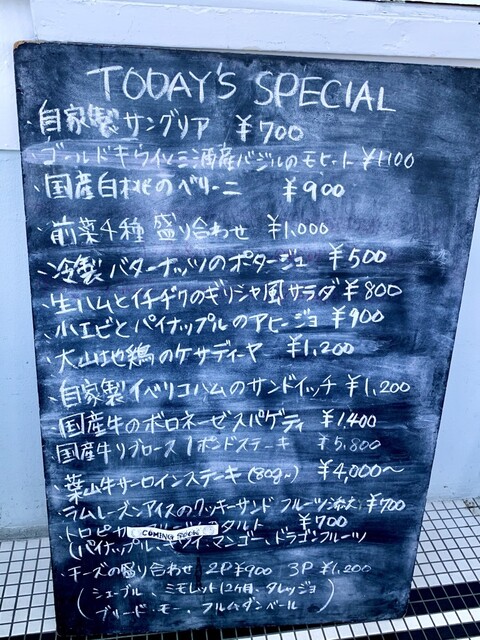 TODAY'S SPECIAL
・自家製サングリア ¥700
・ゴールドキウイと三浦産バジルのモヒート ¥1100
・国産白桃のベリーニ ¥900
・前菜4種 盛り合わせ ¥1,000
・冷製バターナッツのポタージュ ¥500
・生ハムとイチヂクのギリシャ風サラダ ¥800
・小エビとパイナップルのアヒージョ ¥900
・大山地鶏のケサディーヤ ¥1,200
・自家製イベリコハムのサンドイッチ ¥1,200
・国産牛のボロネーゼスパゲティ ¥1,400
・国産牛リブロース1ポンドステーキ ¥5,800
・葉山牛サーロインステーキ(80g〜) ¥4,000〜
・ラムレーズンアイスのクッキーサンド フルーツ添え ¥700
・トロピカ タルト ¥700
COMING SOON
(パイナップル、キウイ、マンゴー、ドラゴンフルーツ
・チーズの盛り合わせ 2P ¥900 3P ¥1,200
(シェーブル、ミモレット12ヶ月、タレッジョ
ブリード・モー、フルムダンベール)